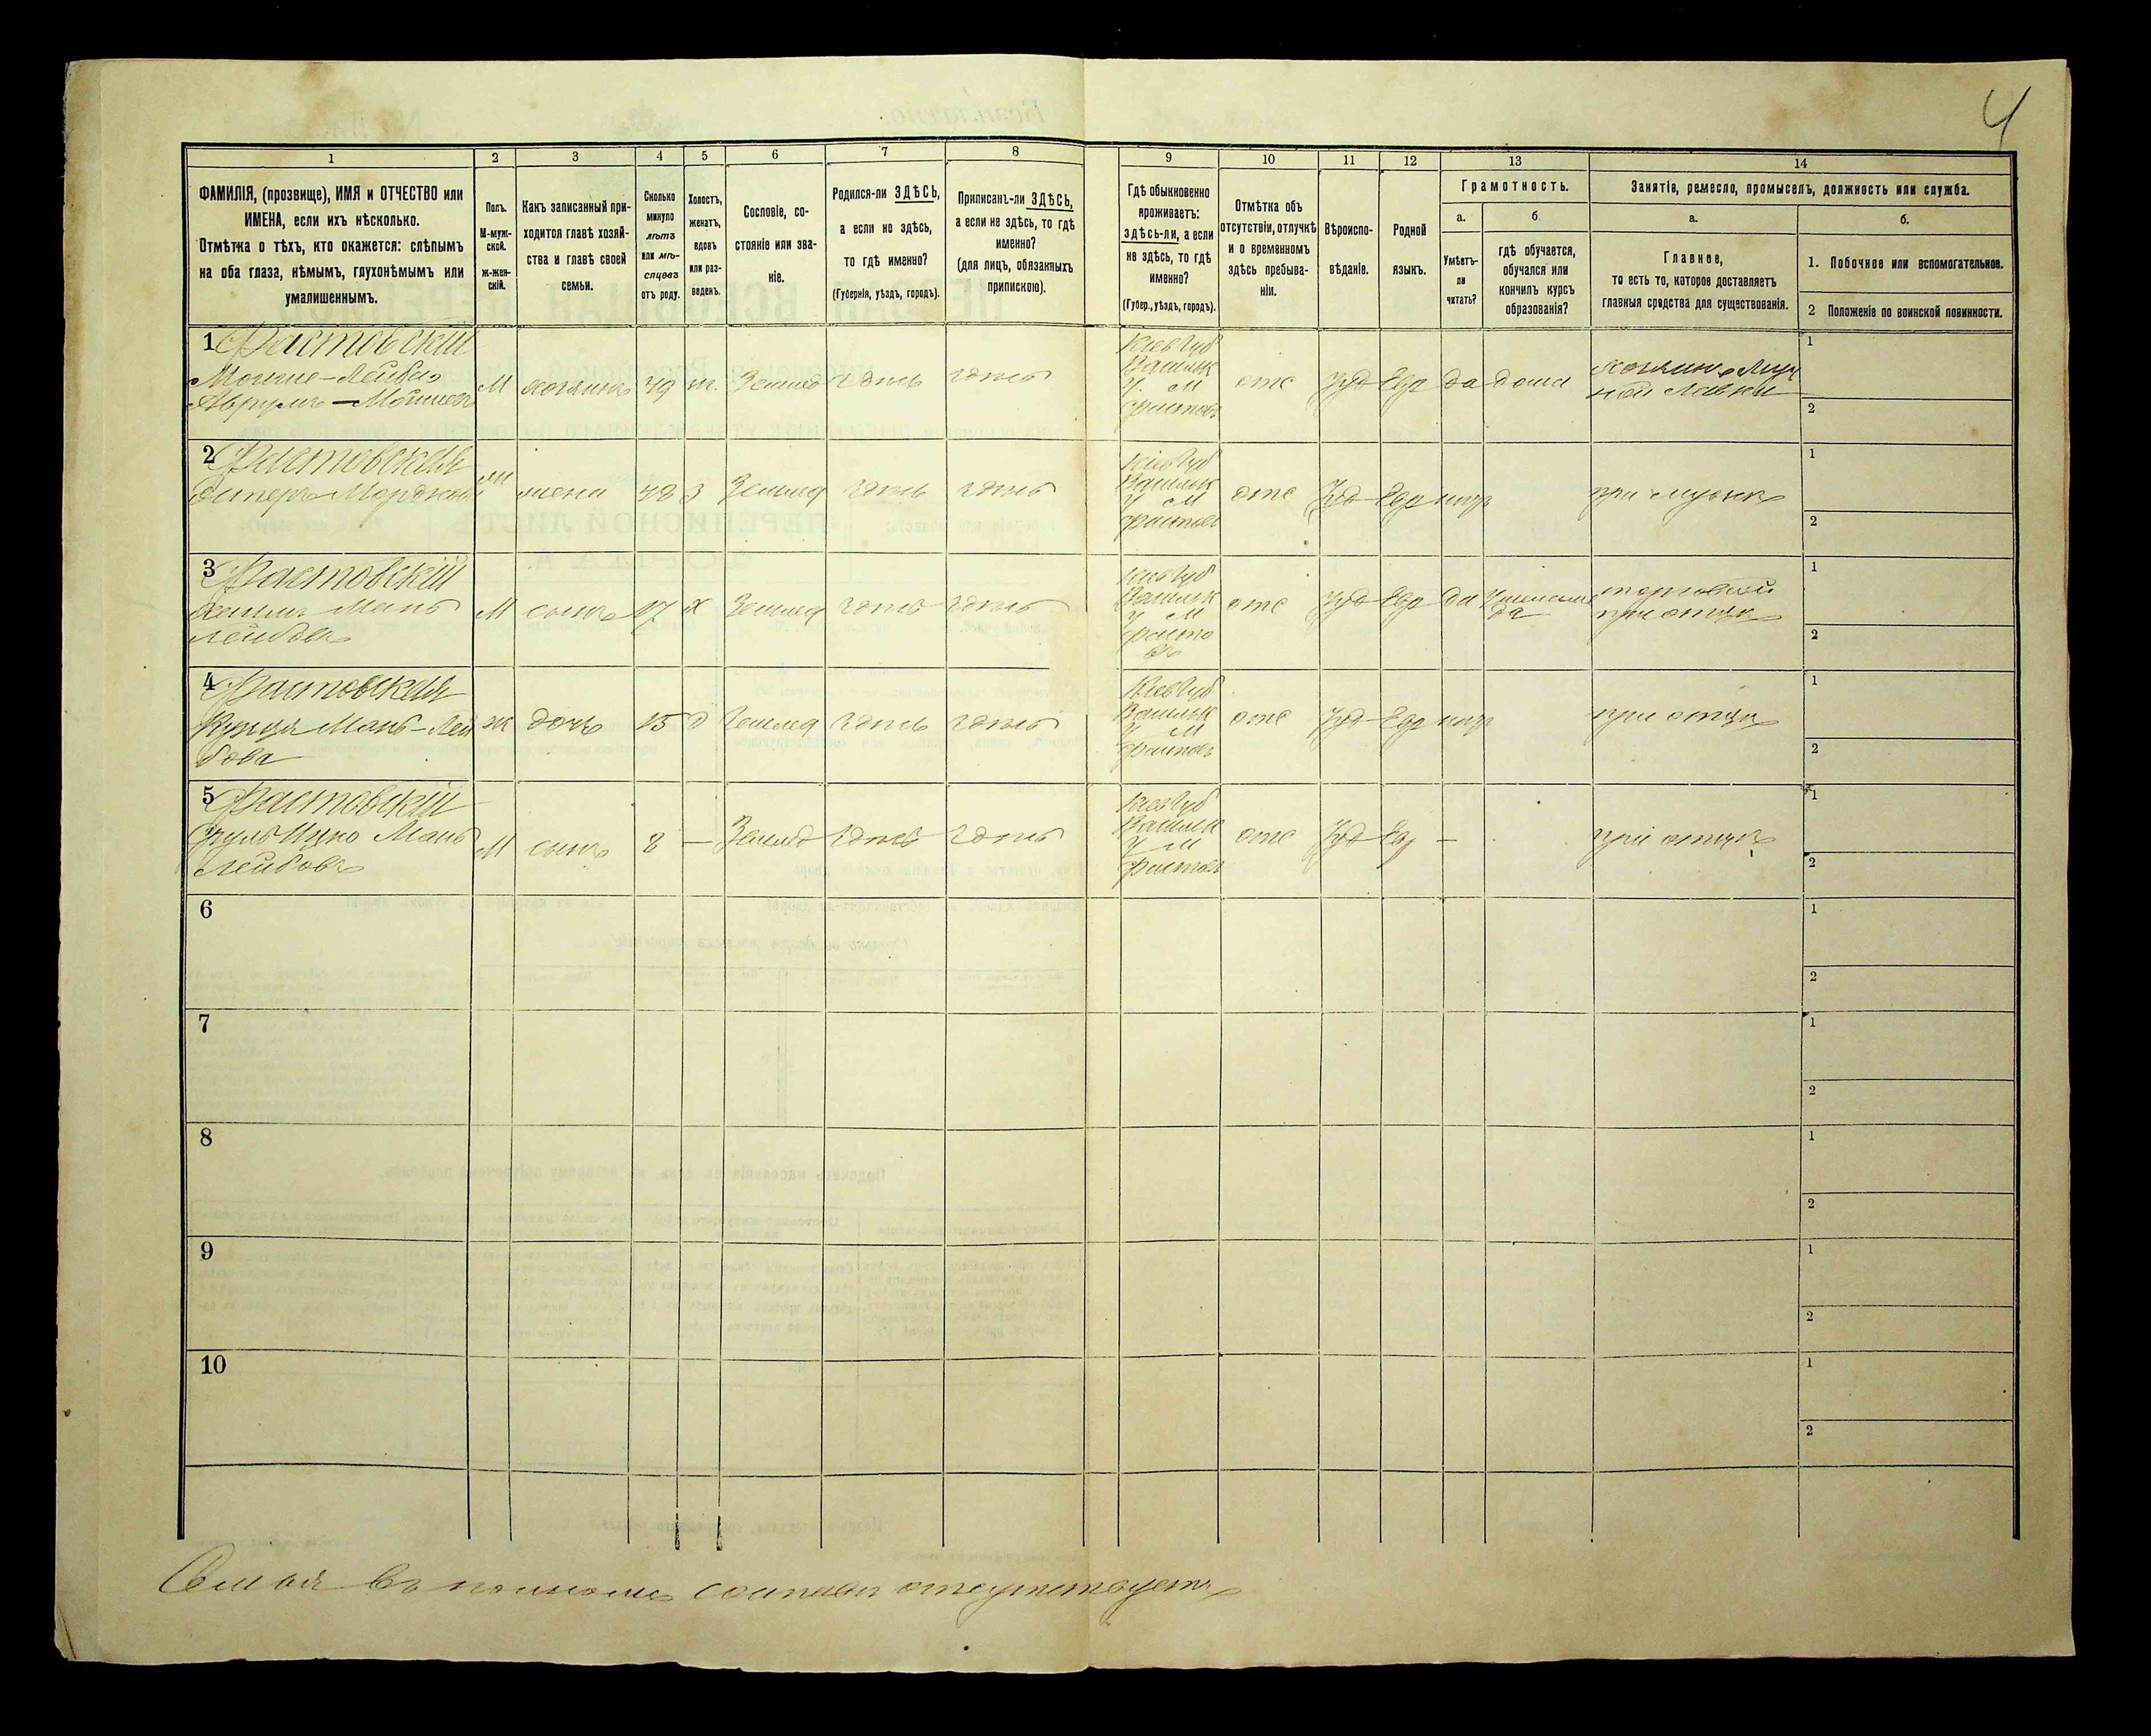 4
1
2
3
4
5
6
7
8
9
10
11
12
13
14
ФАМИЛІЯ, (прозвище), ИМЯ и ОТЧЕСТВО или
ИМЕНА, если ихъ нѣсколько.
Отмѣтка о тѣхъ, кто окажется: слѣпымъ
на оба глаза, нѣмымъ, глухонѣмымъ или
умалишеннымъ.
Полъ.
М-муж-
ской.
ж-жен-
скій.
Какъ записанный при-
ходится главѣ хозяй-
ства и главѣ своей
семьи.
Сколько
минуло
лѣтъ
или мѣ-
сяцевъ
отъ роду.
Холостъ,
женатъ,
вдовъ
или раз-
веденъ.
Сословіе, со-
стояніе или зва-
ніе.
Родился-ли ЗДѢСЬ,
а если не здѣсь,
то гдѣ именно?
(Губернія, уѣздъ, городъ).
Приписанъ-ли ЗДѢСЬ,
а если не здѣсь, то гдѣ
именно?
(для лицъ, обязанныхъ
припискою).
Гдѣ обыкновенно
проживаетъ:
здѣсь-ли, а если
не здѣсь, то гдѣ
именно?
(Губер., уѣздъ, городъ).
Отмѣтка объ
отсутствіи, отлучкѣ
и о временномъ
здѣсь пребыва-
ніи.
Вѣроиспо-
вѣданіе.
Родной
языкъ.
Грамотность.
а.
Умѣетъ-
ли
читать?
б
гдѣ обучается,
обучался или
кончилъ курсъ
образованія?
Занятіе, ремесло, промыселъ, должность или служба.
а.
Главное,
то есть то, которое доставляетъ
главныя средства для существованія.
б.
1. Побочное или вспомогательное.
2 Положеніе по воинской повинности.
1 Фастовскій
Мойше-Лейба
Аврумъ-Мошков
М хозяинъ 49 ж. Землед здесь здесь
Кіев Губ
Васильк
У. М
Фастовъ
отс Іуд Евр да дома
хозяинъ Муч
ной Лавки
1
2
2 Фастовская
Естеръ Мордков
ж жена 48 з Землед здесь здесь
Кіев Губ
Васильк
У М
Фастовъ
отс Іуд Евр нѣтъ при мужѣ
1
2
3 Фастовскій
Лейбов
М сынъ 17 х Землед здесь здесь
Кіев Губ
Васильк
У М
Фасто
въ
отс Іуд Евр да
торговый
при отцѣ
1
2
4 Фастовская
Мань-Лей
бова
ж дочь 15 д Землед здесь здесь
Кіев Губ
Васильк
У М
Фастовъ
отс Іуд Евр нѣтъ при отцѣ
1
2
5 Фастовскій
Сруль Ицко Мань
Лейбовъ
М сынъ 8 — Землед здесь здесь
Кіев Губ
Васильк
У М
Фастовъ
отс Іуд Евр — при отцѣ
1
2
6
1
2
7
1
2
8
1
2
9
1
2
10
1
2
Семья въ полномъ составѣ отсутствуетъ